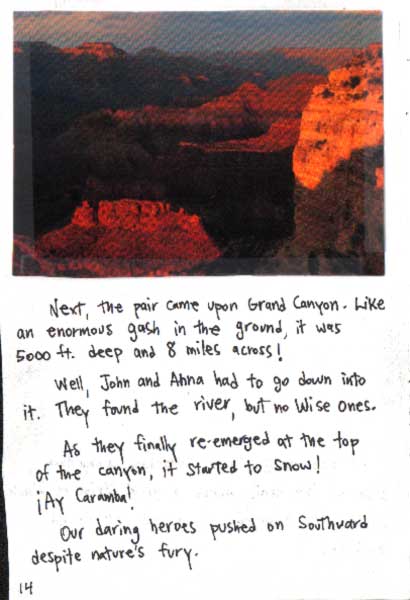 Next, the pair came upon Grand Canyon. Like
an enormous gash in the ground, it was
5000 ft. deep and 8 miles across!
Well, John and Anna had to go down into
it. They found the river, but no Wise Ones.
As they finally re-emerged at the top
of the canyon, it started to snow!
¡Ay Caramba!
Our daring heroes pushed on Southward
despite nature's fury.
14